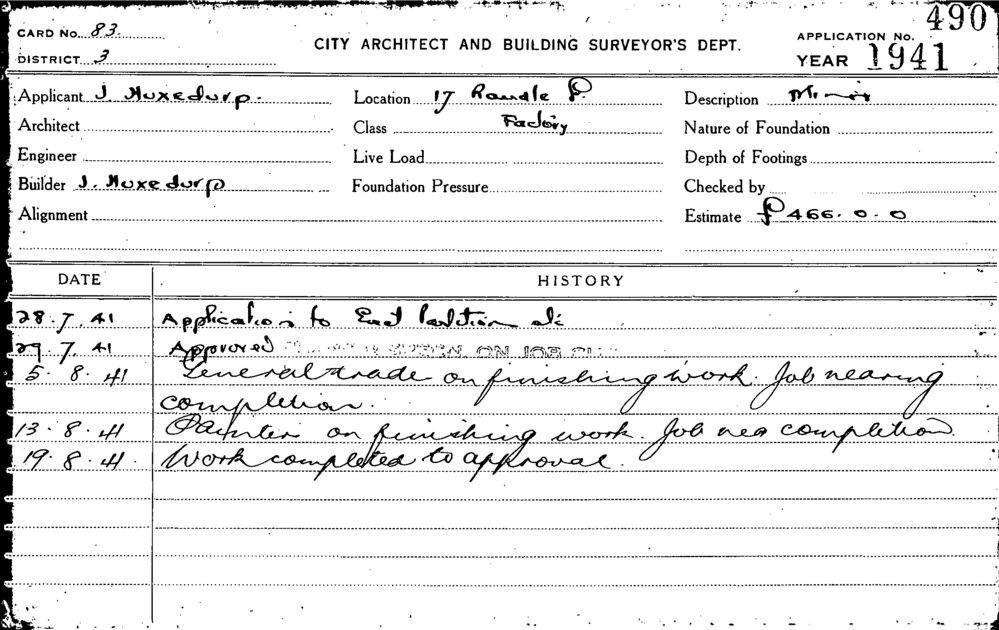 CARD No. 83.
DISTRICT 3
CITY ARCHITECT AND BUILDING SURVEYOR'S DEPT.
APPLICATION No. 490
YEAR 1941
Applicant J. Huxedurp. Location 17 Randle St. Description Minor
Architect Class Factory Nature of Foundation
Engineer Live Load Depth of Footings
Builder J. Huxedurp Foundation Pressure Checked by
Alignment Estimate £466.0.0
DATE HISTORY
28.7.41 Application to Erect Partition etc
29 7.41 Approved ON JOB
5.8.41 General trade on finishing work. Job nearing
completion.
13.8.41 Painters on finishing work. Job near completion
19.8.41. Work completed to approval.